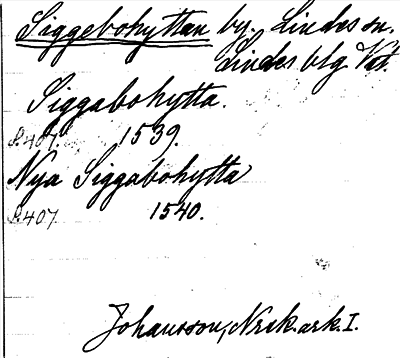 Siggebohyttan by. Lindes sn.
Lindes blg. Vstm.
Siggabohytta.
S. 407. 1539.
Nya Siggabohytta
S. 407 1540.
Johansson, Nrik. ark. I.